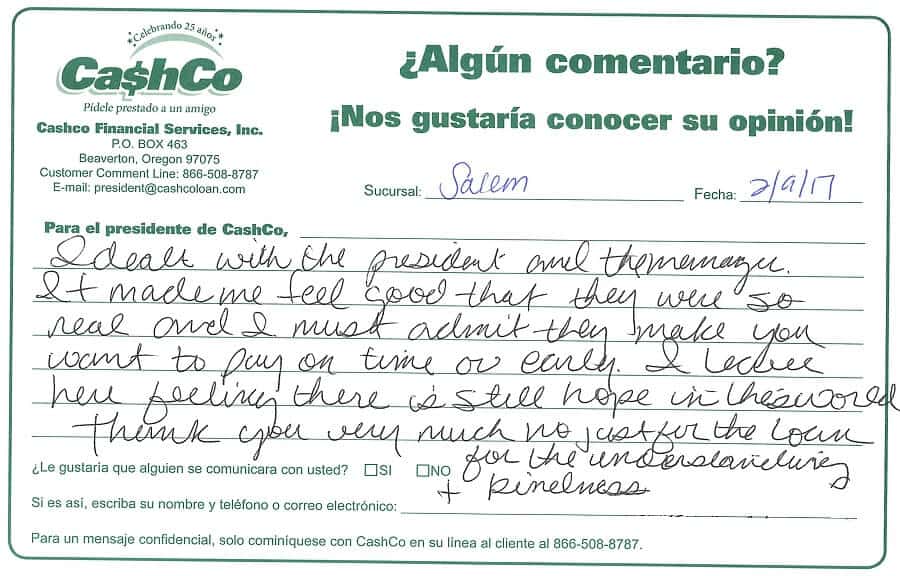 Celebrando 25 años
Ca$hCo
Pídele prestado a un amigo
Cashco Financial Services, Inc.
P.O. BOX 463
Beaverton, Oregon 97075
Customer Comment Line: 866-508-8787
E-mail: president@cashcoloan.com
¿Algún comentario?
¡Nos gustaría conocer su opinión!
Sucursal: Salem
Fecha: 2/9/17
Para el presidente de CashCo,
I dealt with the president and the manager.
It made me feel good that they were so
real and I must admit they make you
want to pay on time or early. I leave
here feeling there is still hope in this world
Thank you very much no just for the loan
for the understanding
+ kindness
¿Le gustaria que alguien se comunicara con usted? SI NO
Si es así, escriba su nombre y teléfono o correo electrónico:
Para un mensaje confidencial, solo cominíquese con CashCo en su linea al cliente al 866-508-8787.